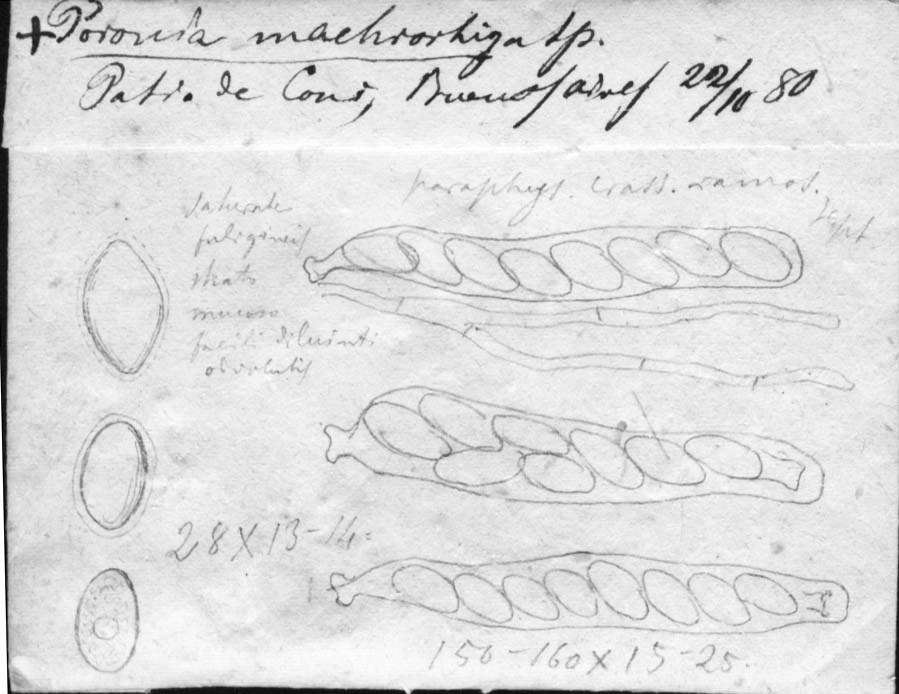 + Poronia machrorhiza sp.
Patio de Coni, Buenos aires 22/10 80
paraphys. crass. ramos.
sept
saturate
fuligineis
strato
mucoso
facili diluenti
obvolutis
28 X 13-14=
150-160 x 15-25.